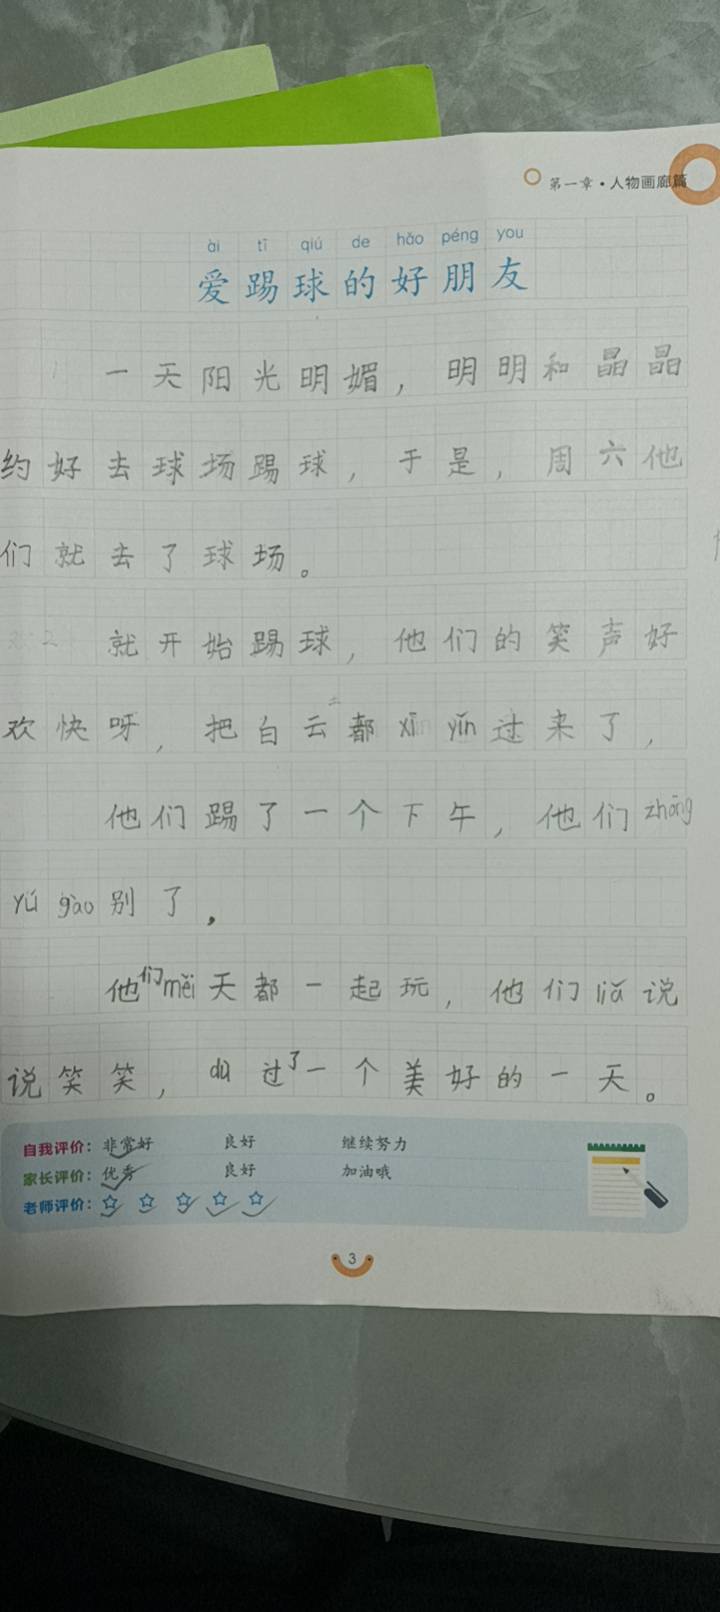 第一章·人物画廊篇
ài tī qiú de hǎo péng you
爱踢球的好朋友
一天阳光明媚，明明和晶晶
约好去球场踢球，于是，周六他
们就去了球场。
就开始踢球，他们的笑声好
欢快呀，把白云都xīn yǐn过来了，
他们踢了一个下午，他们zhāng
yú gào别了，
他们měi天都一起玩，他们liǎ说
说笑笑，dù过了一个美好的一天。
自我评价：非常好 良好 继续努力
家长评价：优秀 良好 加油哦
老师评价：☆☆☆☆☆
3